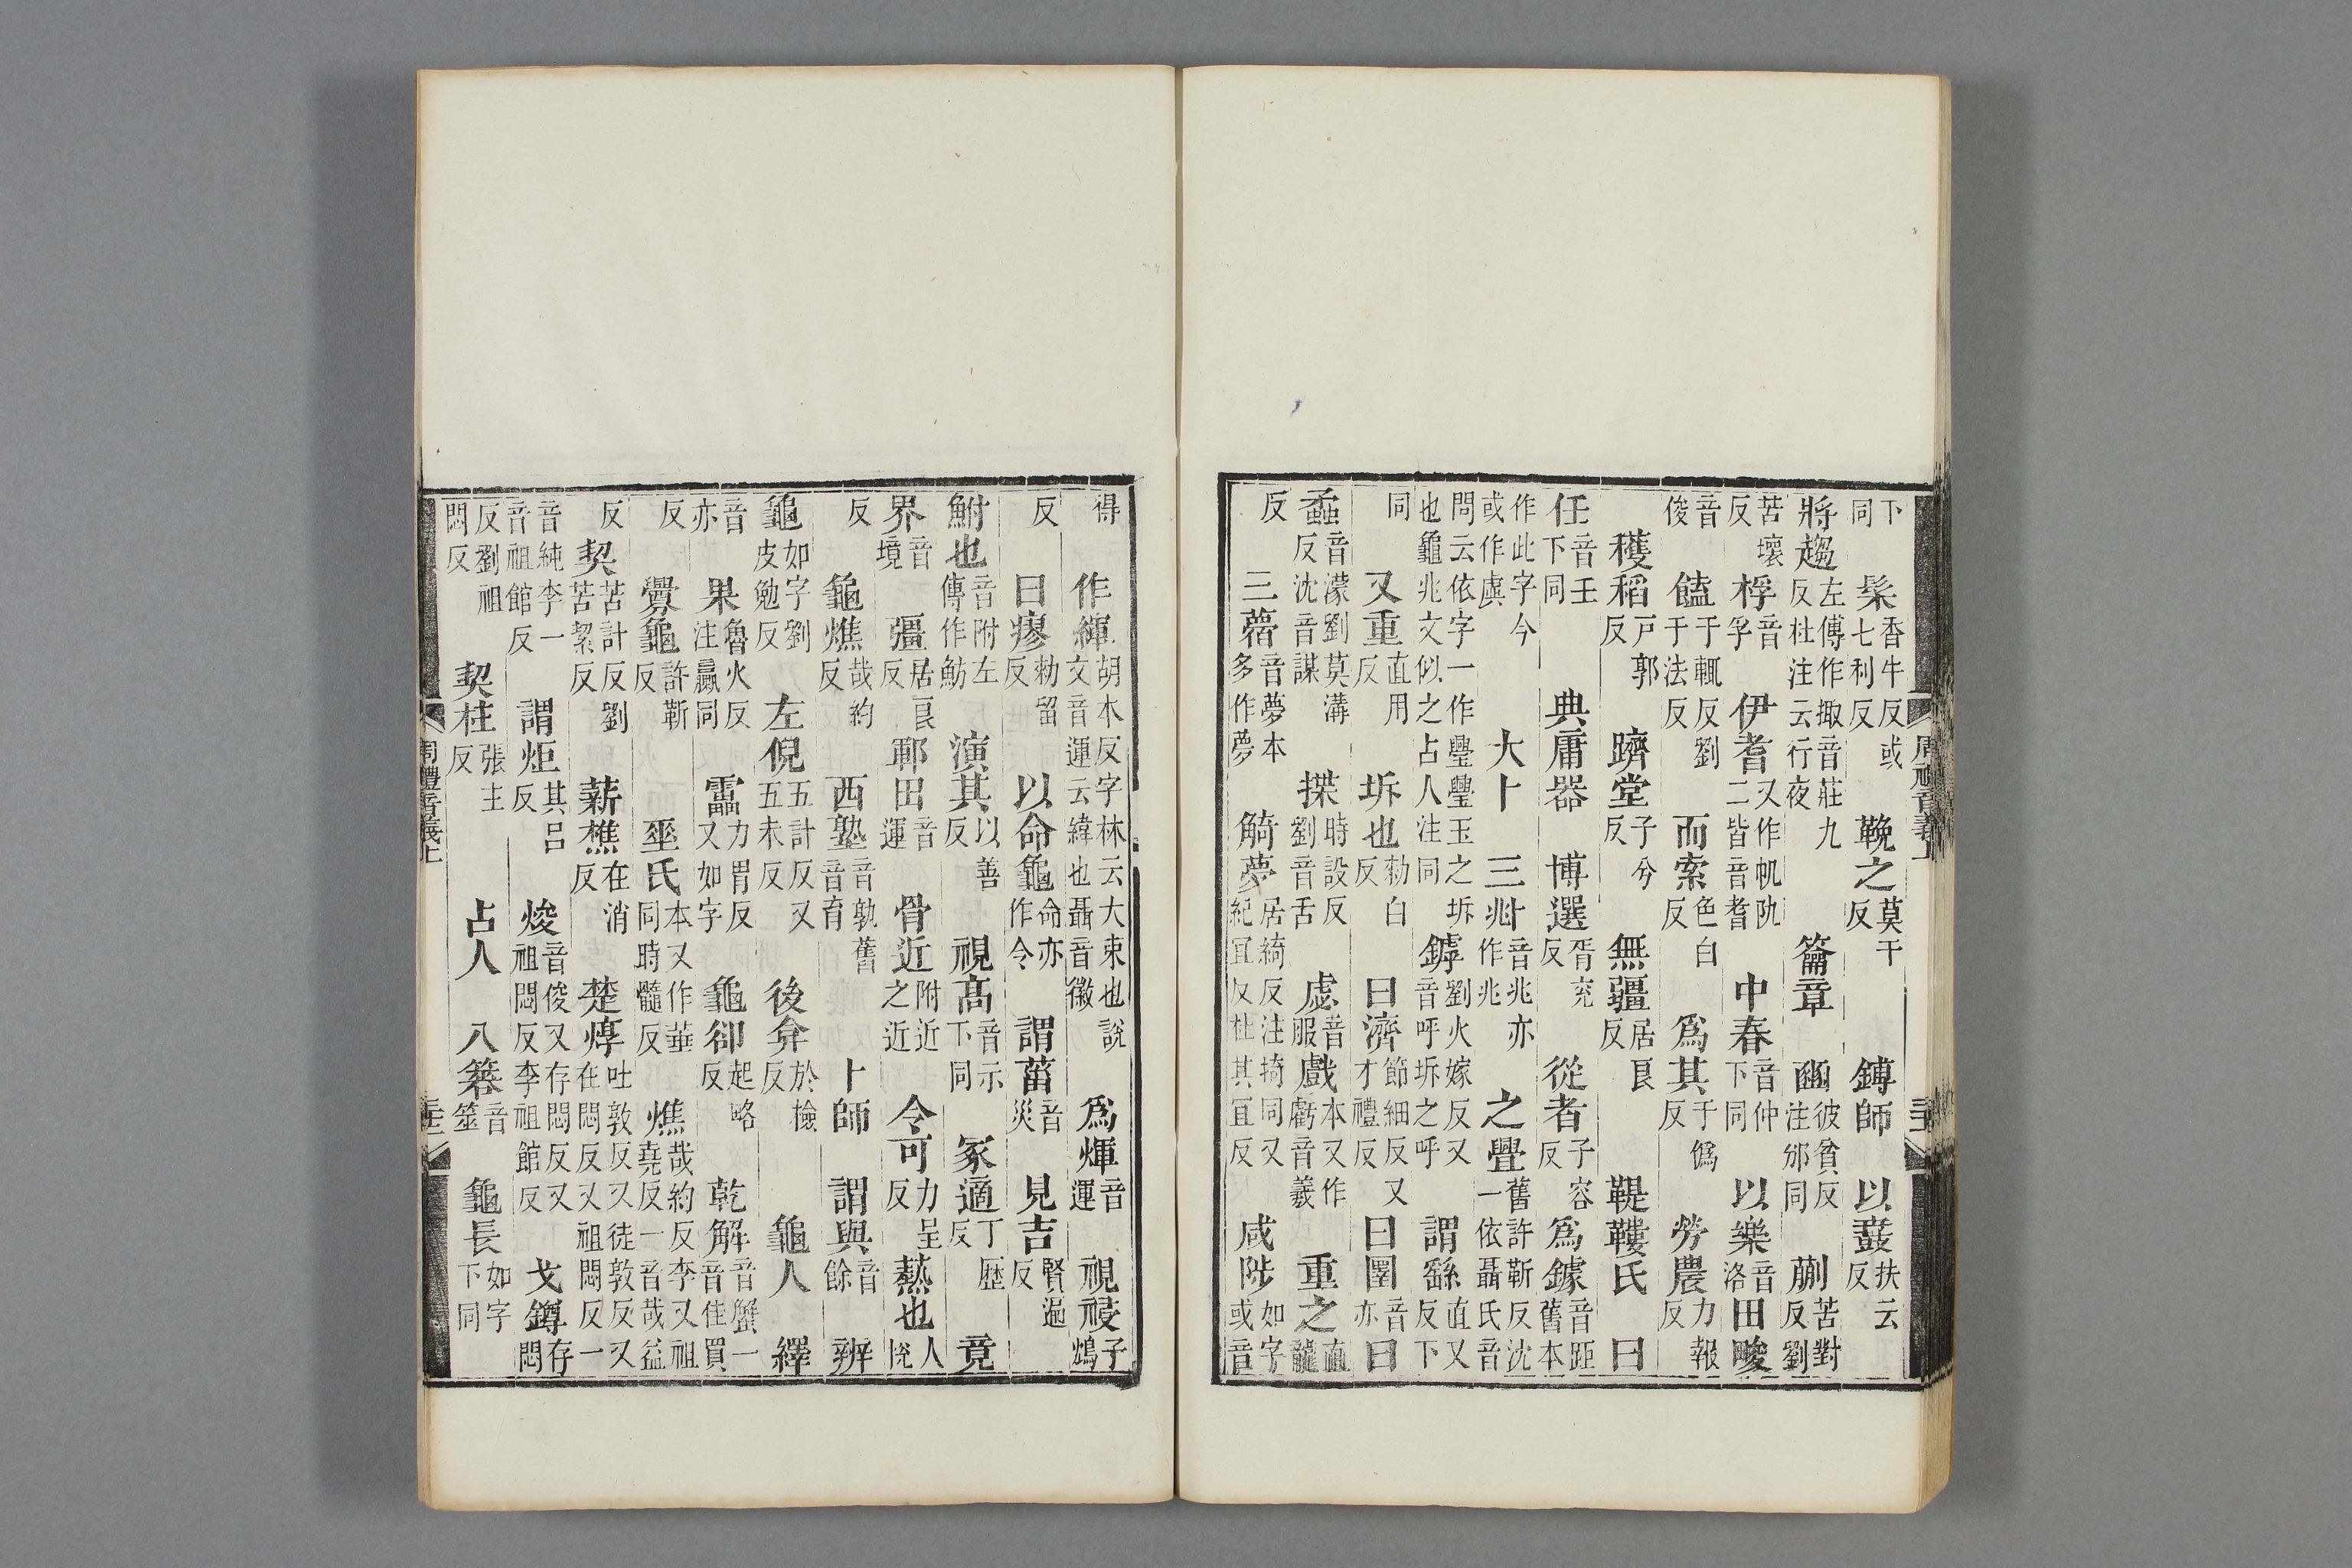 下同髹香牛反或七利反鞔之莫干反鎛師以鼖扶云反
將趨左傳作掫音莊九反杜注云行夜籥章豳彼貧反注邠同蒯苦對反劉
苦壞反桴音孚伊耆又作帆阠二皆音耆中春音仲下同以樂音洛田畯
音俊饁于輒反劉于法反而索色白反爲其于僞反勞農力報反
穫稻戸郭反躋堂子兮反無疆居良反鞮鞻氏曰
任音壬下同典庸器博選胥兖反從者子容反爲鐻音距舊本
作此字今或作虡大卜三兆音兆亦作兆之舋舊許靳反沈依聶氏音
問云依字一作璺璺玉之坼也龜兆文似之占人注同罅劉火嫁反又音呼坼之呼謂繇直又反下
同又重直用反坼也勑白反曰濟節細反又才禮反曰圛音亦曰
蟊音濛劉莫溝反沈音謀揲時設反劉音舌虙音服戲本又作虧音羲重之直龍
反三㝱音夢本多作夢觭夢居綺反注掎同又紀宜反杜其宜反咸陟如字或音
周禮音義上
得作緷胡本反字林云大束也說文音運云緯也聶音徽爲煇音運視祲子鴆
反曰瘳勑留反以命龜命亦作令謂葘音災見吉賢遍反
鮒也音附左傳作魴演其以善反視髙音示下同冢適丁歴反竟
界音境彊居良反鄆田音運骨近附近之近令可力呈反爇也人悅
反龜燋哉約反西塾音孰舊音育卜師謂與音餘辨
龜如字劉皮勉反左倪五計反又五未反後弇於檢反龜人繹
音亦果魯火反注蠃同靁力胃反又如字龜卻起略反乾解音蟹一音佳買
反釁龜許靳反菙氏本又作華同時髓反燋哉約反李又祖堯反一音哉益
反契苦計反劉苦絜反薪樵在消反楚焞吐敦反又徒敦反又在悶反又祖悶反一
音純李一音祖館反謂炬其呂反焌音俊又存悶反又祖悶反李祖館反戈鐏存悶
反劉祖悶反契柱張主反占人八簭音筮龜長如字下同
周禮音義上